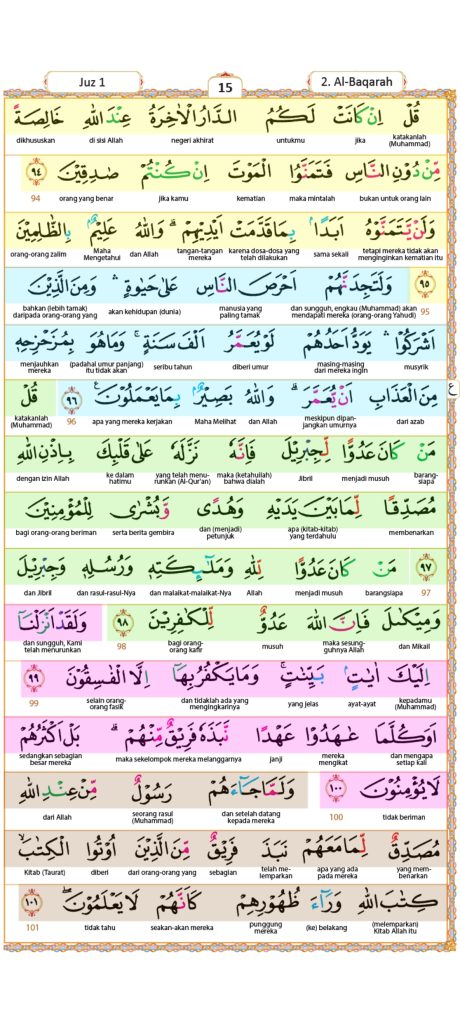 Juz 1
15
2. Al-Baqarah
قُلْ اِنْ كَانَتْ لَكُمُ الدَّارُ الْاٰخِرَةُ عِنْدَ اللّٰهِ خَالِصَةً
katakanlah (Muhammad) jika untukmu negeri akhirat di sisi Allah dikhususkan
مِّنْ دُوْنِ النَّاسِ فَتَمَنَّوُا الْمَوْتَ اِنْ كُنْتُمْ صٰدِقِيْنَ ٩٤
bukan untuk orang lain maka mintalah kematian jika kamu orang yang benar 94
وَلَنْ يَّتَمَنَّوْهُ اَبَدًاۢ بِمَا قَدَّمَتْ اَيْدِيْهِمْ ۗ وَاللّٰهُ عَلِيْمٌۢ بِالظّٰلِمِيْنَ
tetapi mereka tidak akan menginginkan kematian itu sama sekali karena dosa-dosa yang telah dilakukan tangan-tangan mereka dan Allah Maha Mengetahui orang-orang zalim
٩٥ وَلَتَجِدَنَّهُمْ اَحْرَصَ النَّاسِ عَلٰى حَيٰوةٍ ۛ وَمِنَ الَّذِيْنَ
95 dan sungguh, engkau (Muhammad) akan mendapati mereka (orang-orang Yahudi) manusia yang paling tamak akan kehidupan (dunia) bahkan (lebih tamak) daripada orang-orang yang
اَشْرَكُوْا ۛ يَوَدُّ اَحَدُهُمْ لَوْ يُعَمَّرُ اَلْفَ سَنَةٍ ۚ وَمَا هُوَ بِمُزَحْزِحِهٖ
musyrik masing-masing dari mereka ingin diberi umur seribu tahun (padahal umur panjang) itu tidak akan menjauhkan mereka
مِنَ الْعَذَابِ اَنْ يُّعَمَّرَ ۗ وَاللّٰهُ بَصِيْرٌۢ بِمَا يَعْمَلُوْنَ ࣖ ٩٦ قُلْ
dari azab meskipun dipanjangkan umurnya dan Allah Maha Melihat apa yang mereka kerjakan 96 katakanlah (Muhammad)
ع
مَنْ كَانَ عَدُوًّا لِّجِبْرِيْلَ فَاِنَّهٗ نَزَّلَهٗ عَلٰى قَلْبِكَ بِاِذْنِ اللّٰهِ
barangsiapa menjadi musuh Jibril maka (ketahuilah) bahwa dialah yang telah menurunkan (Al-Qur'an) ke dalam hatimu dengan izin Allah
مُصَدِّقًا لِّمَا بَيْنَ يَدَيْهِ وَهُدًى وَّبُشْرٰى لِلْمُؤْمِنِيْنَ
membenarkan apa (kitab-kitab) yang terdahulu dan (menjadi) petunjuk serta berita gembira bagi orang-orang beriman
٩٧ مَنْ كَانَ عَدُوًّا لِّلّٰهِ وَمَلٰۤىِٕكَتِهٖ وَرُسُلِهٖ وَجِبْرِيْلَ
97 barangsiapa menjadi musuh Allah dan malaikat-malaikat-Nya dan rasul-rasul-Nya dan Jibril
وَمِيْكٰىلَ فَاِنَّ اللّٰهَ عَدُوٌّ لِّلْكٰفِرِيْنَ ٩٨ وَلَقَدْ اَنْزَلْنَآ
dan Mikail maka sesungguhnya Allah musuh bagi orang-orang kafir 98 dan sungguh, Kami telah menurunkan
اِلَيْكَ اٰيٰتٍۢ بَيِّنٰتٍۚ وَمَا يَكْفُرُ بِهَآ اِلَّا الْفٰسِقُوْنَ ٩٩
kepadamu (Muhammad) ayat-ayat yang jelas dan tidaklah ada yang mengingkarinya selain orang-orang fasik 99
اَوَكُلَّمَا عٰهَدُوْا عَهْدًا نَّبَذَهٗ فَرِيْقٌ مِّنْهُمْ ۗ بَلْ اَكْثَرُهُمْ
dan mengapa setiap kali mereka mengikat janji maka sekelompok mereka melanggarnya sedangkan sebagian besar mereka
لَا يُؤْمِنُوْنَ ١٠٠ وَلَمَّا جَاۤءَهُمْ رَسُوْلٌ مِّنْ عِنْدِ اللّٰهِ
tidak beriman 100 dan setelah datang kepada mereka seorang rasul (Muhammad) dari Allah
مُصَدِّقٌ لِّمَا مَعَهُمْ نَبَذَ فَرِيْقٌ مِّنَ الَّذِيْنَ اُوْتُوا الْكِتٰبَۙ
yang membenarkan apa yang ada pada mereka telah melemparkan sebagian dari orang-orang yang diberi Kitab (Taurat)
كِتٰبَ اللّٰهِ وَرَاۤءَ ظُهُوْرِهِمْ كَاَنَّهُمْ لَا يَعْلَمُوْنَۖ ١٠١
(melemparkan) Kitab Allah itu (ke) belakang punggung mereka seakan-akan mereka tidak tahu 101